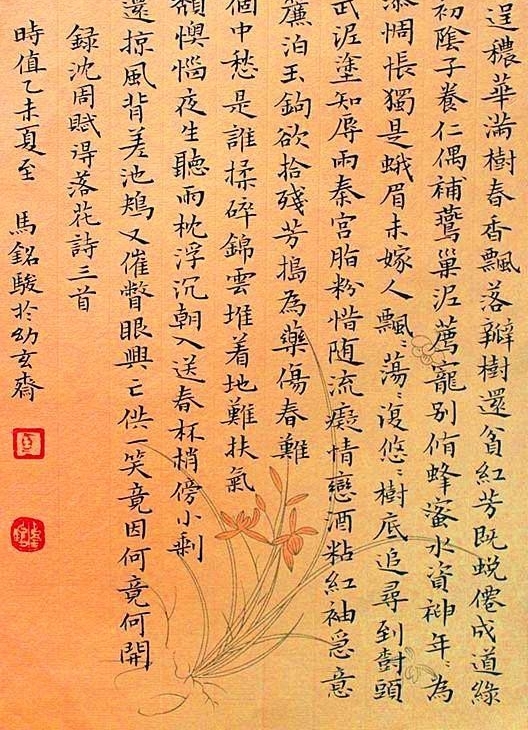 逞穠華滿樹春香飄落瓣樹還貧紅芳既蛻僊成道綠
初陰子養仁偶補鷰巢泥薦寵別脩蜂蜜水資神年〻為
添惆悵獨是蛾眉未嫁人飄〻蕩〻復悠〻樹底追尋到樹頭
武泥塗知辱雨秦宮脂粉惜随流癡情戀酒粘紅袖急意
簾泊玉鉤欲拾殘芳搗為藥傷春難
個中愁是誰揉碎錦雲堆着地難扶氣
頹懊惱夜生聽雨枕浮沉朝入送春杯梢傍小剩
還掠風背差池鴆又催瞥眼興亡供一笑竟因何竟何開
録沈周賦得落花詩三首
時值乙未夏至 馬銘駿於幼玄齋